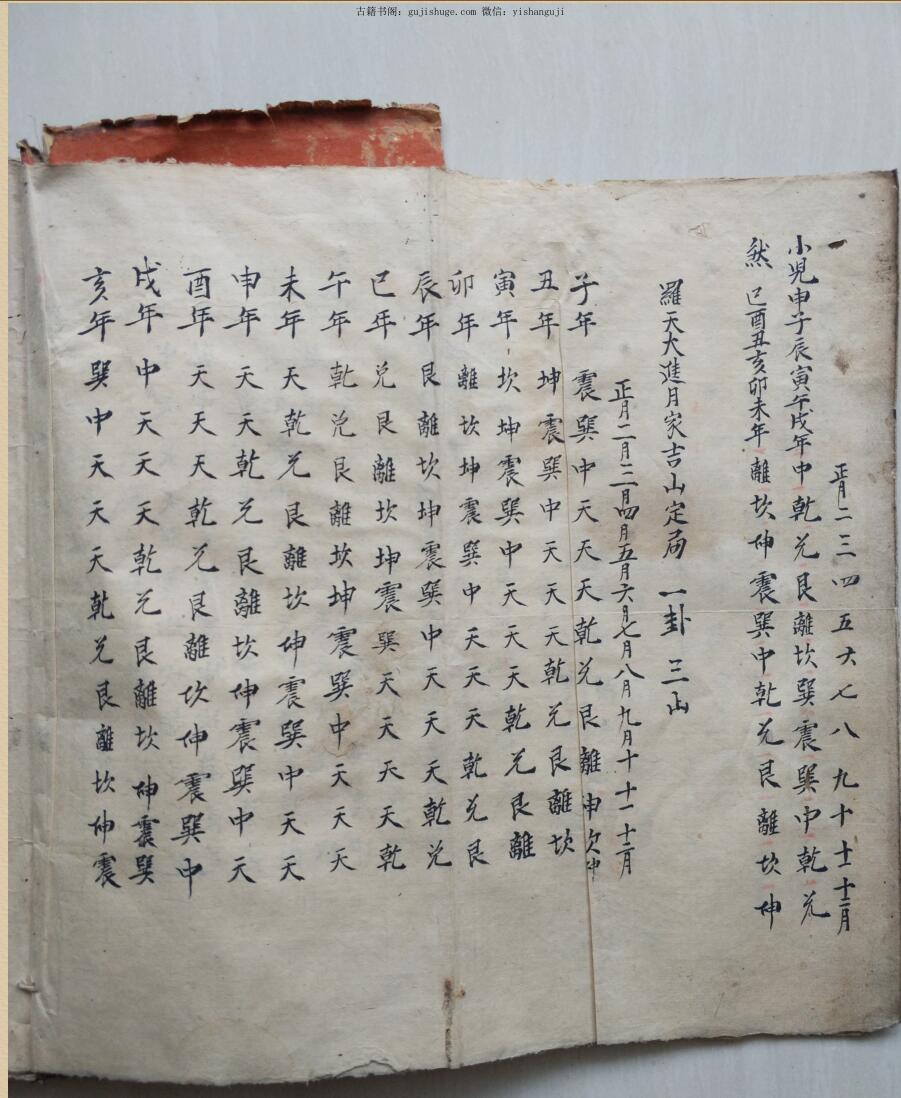 古籍书阁：gujishuge.com 微信：yishanguji
正月二三四五六七八九十十一十二月
小児申子辰寅午戌年中乾兑艮離坎巽震巽中乾兑
煞 巳酉丑亥卯未年離坎伸震巽中乾兑艮離坎伸
羅天大進月家吉山定局 一卦三山
正月二月三月四月五月六月七月八月九月十十一十二月
子年震巽中天天天乾兑艮離申坎中
丑年坤震巽中天天天乾兑艮離坎
寅年坎坤震巽中天天天乾兑艮離
卯年離坎坤震巽中天天天乾兑艮
辰年艮離坎坤震巽中天天天乾兑
巳年兑艮離坎坤震巽天天天天乾
午年乾兑艮離坎坤震巽中天天天
未年天乾兑艮離坎伸震巽中天天
申年天天乾兑艮離坎伸震巽中天
酉年天天天乾兑艮離坎伸震巽中
戌年中天天天乾兑艮離坎伸震巽
亥年巽中天天天乾兑艮離坎伸震